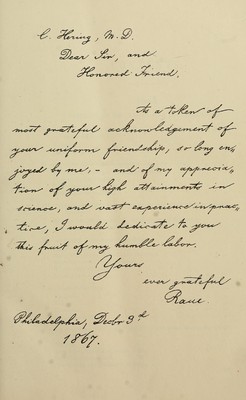 C. Hering, M. D.
Dear Sir, and
Honored Friend.
As a token of
most grateful acknowledgement of
your uniform friendship, so long en-
joyed by me, - and of my apprecia-
tion of your high attainments in
science, and vast experience in prac-
tice, I would dedicate to you
this fruit of my humble labor.
Yours
ever grateful
Raue.
Philadelphia, Decbr 3d
1867.